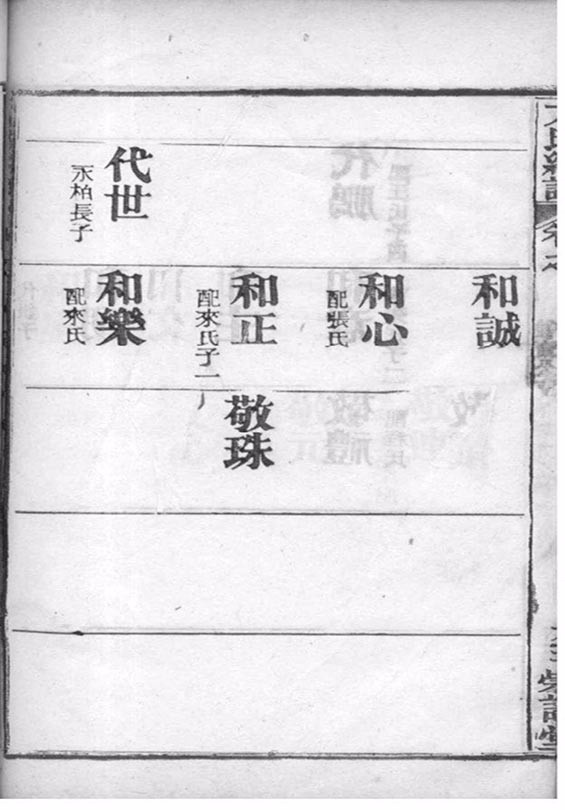 代世
永柏長子
和誠
和心
配張氏
和正
配來氏子一
和樂
配來氏
敬珠